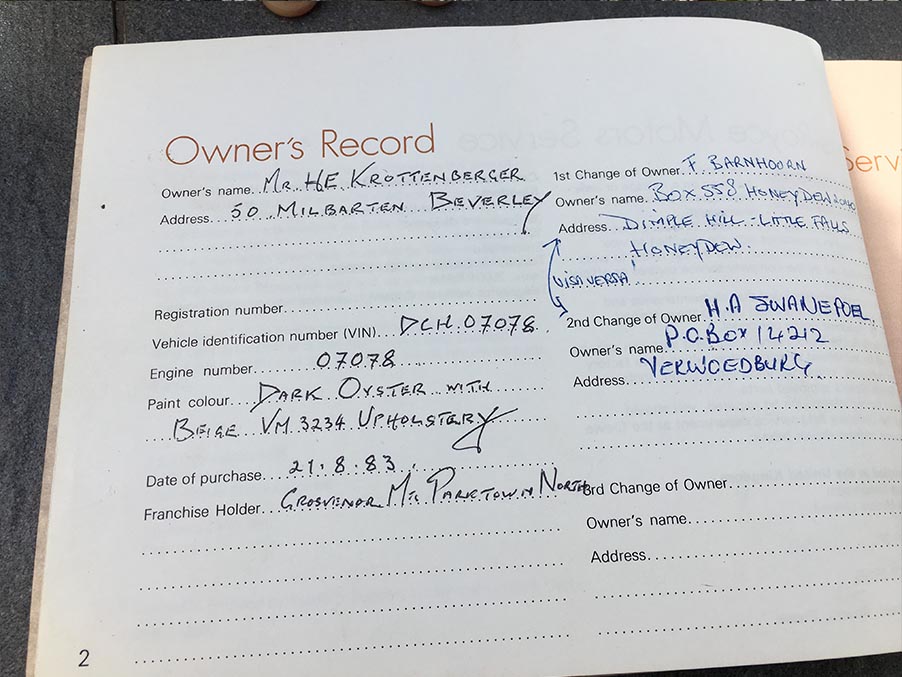 Owner's Record
Owner's name MR. HE KROTTENBERGER
Address 50 MILBARTEN BEVERLEY
Registration number
Vehicle identification number (VIN) DCH 07078
Engine number 07078
Paint colour DARK OYSTER WITH
BEIGE VM 3234 UPHOLSTERY
Date of purchase 21.8.83
Franchise Holder GROSVENOR MTS PARKTOWN NORTH
2
1st Change of Owner F. BARNHOORN
Owner's name BOX 558 HONEYDEW
Address DIMPLE HILL - LITTLE FALLS
HONEYDEW.
VISAVERSA
2nd Change of Owner H.A SWANEPOEL
Owner's name P.O. BOX 14212
Address VERWOEDBURG
3rd Change of Owner
Owner's name
Address
Servi